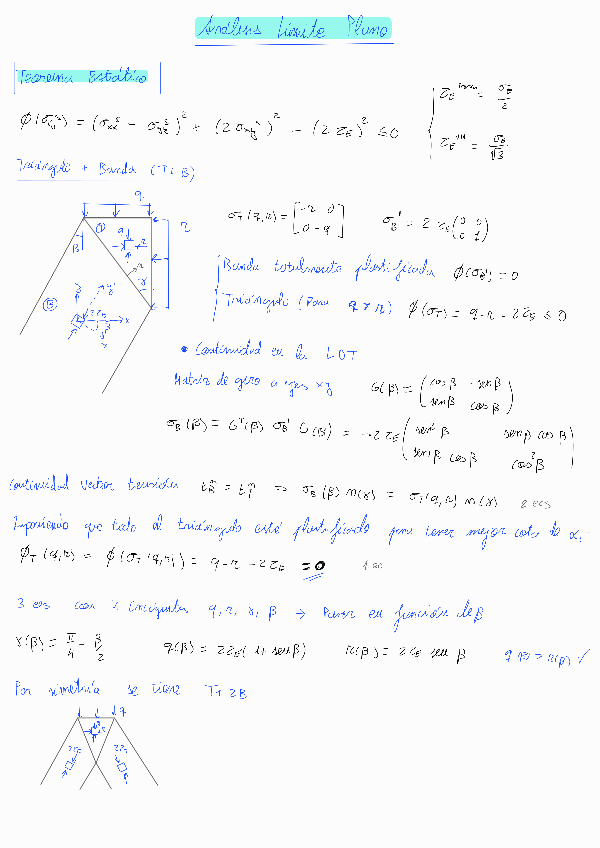 Análisis Límite Plano
Teorema Estático
ϕ(σ) = (σxx - σyy)² + (2σxy)² - (2τE)² ≤ 0
τE = σE/2
τE = σE/√3
Triángulo + Banda (T+B)
q
σT(q,r) = [-r 0; 0 -q]
σB' = 2τE(0 0; 0 1)
Banda totalmente plastificada ϕ(σB') = 0
Triángulo (Para q > r) ϕ(σT) = q - r - 2τE ≤ 0
• Continuidad en la LDT
Matriz de giro a ejes xy G(β) = (cosβ -senβ; senβ cosβ)
σB(β) = Gᵀ(β) σB' G(β) = -2τE(sen²β senβ cosβ; senβ cosβ cos²β)
Continuidad vector tensión tB = tT ⇒ σB(β) n(γ) = σT(q,r) n(γ) 2 ecs
Imponiendo que todo el triángulo está plastificado para tener mejor cota de α.
ϕT(q,r) = ϕ(σT(q,r)) = q - r - 2τE = 0 1 ec
3 ecs con 4 incógnitas q, r, γ, β → Poner en función de β
γ(β) = π/4 - β/2 q(β) = 2τE(1+senβ) r(β) = 2τE senβ q(β) > r(β) ✓
Por simetría se tiene T+2B
q
2τE 2τE